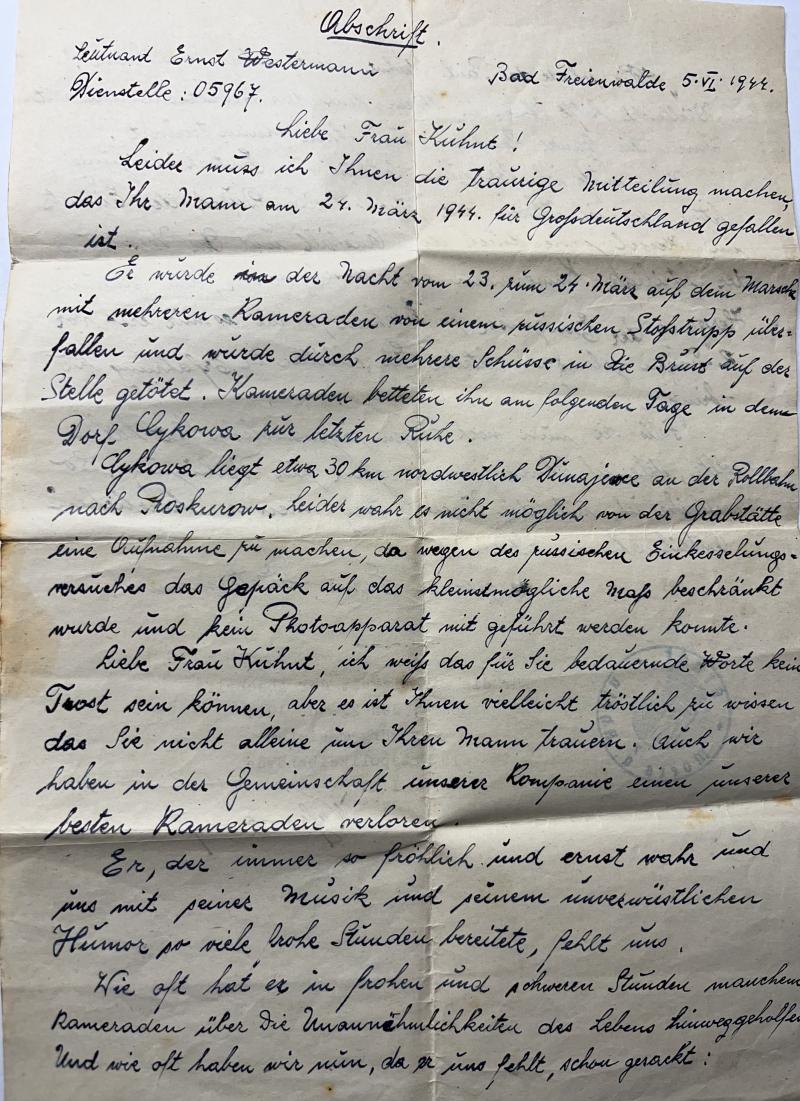 Abschrift.
Leutnand Ernst Westermann
Dienstelle: 05967.
Bad Freienwalde 5.VI.1944.
Liebe Frau Kuhnt!
Leider muss ich Ihnen die traurige Mitteilung machen,
das Ihr Mann am 24. März 1944. für Großdeutschland gefallen
ist.
Er wurde in der Nacht vom 23. zum 24. März auf dem Marsch
mit mehreren Kameraden von einem russischen Stoßtrupp über=
fallen und wurde durch mehrere Schüsse in die Brust auf der
Stelle getötet. Kameraden betteten ihn am folgenden Tage in dem
Dorf Cykowa zur letzten Ruhe.
Cykowa liegt etwa 30 km nordwestlich Dunajewce an der Rollbahn
nach Proskurow. Leider wahr es nicht möglich von der Grabstätte
eine Aufnahme zu machen, da wegen des russischen Einkesselungs=
versuches das Gepäck auf das kleinstmögliche Maß beschränkt
wurde und kein Photoapparat mit geführt werden konnte.
Liebe Frau Kuhnt, ich weiß das für Sie bedauernde Worte kein
Trost sein können, aber es ist Ihnen vielleicht tröstlich zu wissen
das Sie nicht alleine um Ihren Mann trauern. Auch wir
haben in der Gemeinschaft unserer Kompanie einen unserer
besten Kameraden verloren.
Er, der immer so fröhlich und ernst wahr und
uns mit seiner Musik und seinem unverwüstlichen
Humor so viele frohe Stunden bereitete, fehlt uns.
Wie oft hat er in frohen und schweren Stunden manchem
Kameraden über die Unannehmlichkeiten des Lebens hinweggeholfen
Und wie oft haben wir nun, da er uns fehlt, schon gesagt: